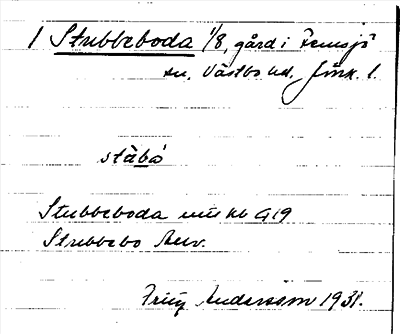 1 Stubbeboda 1/8, gård i Femsjö
sn, Västbo hd, Jönk. l.
stàbó
Stubbeboda
Stubbebo
Fritz Andersson 1931.